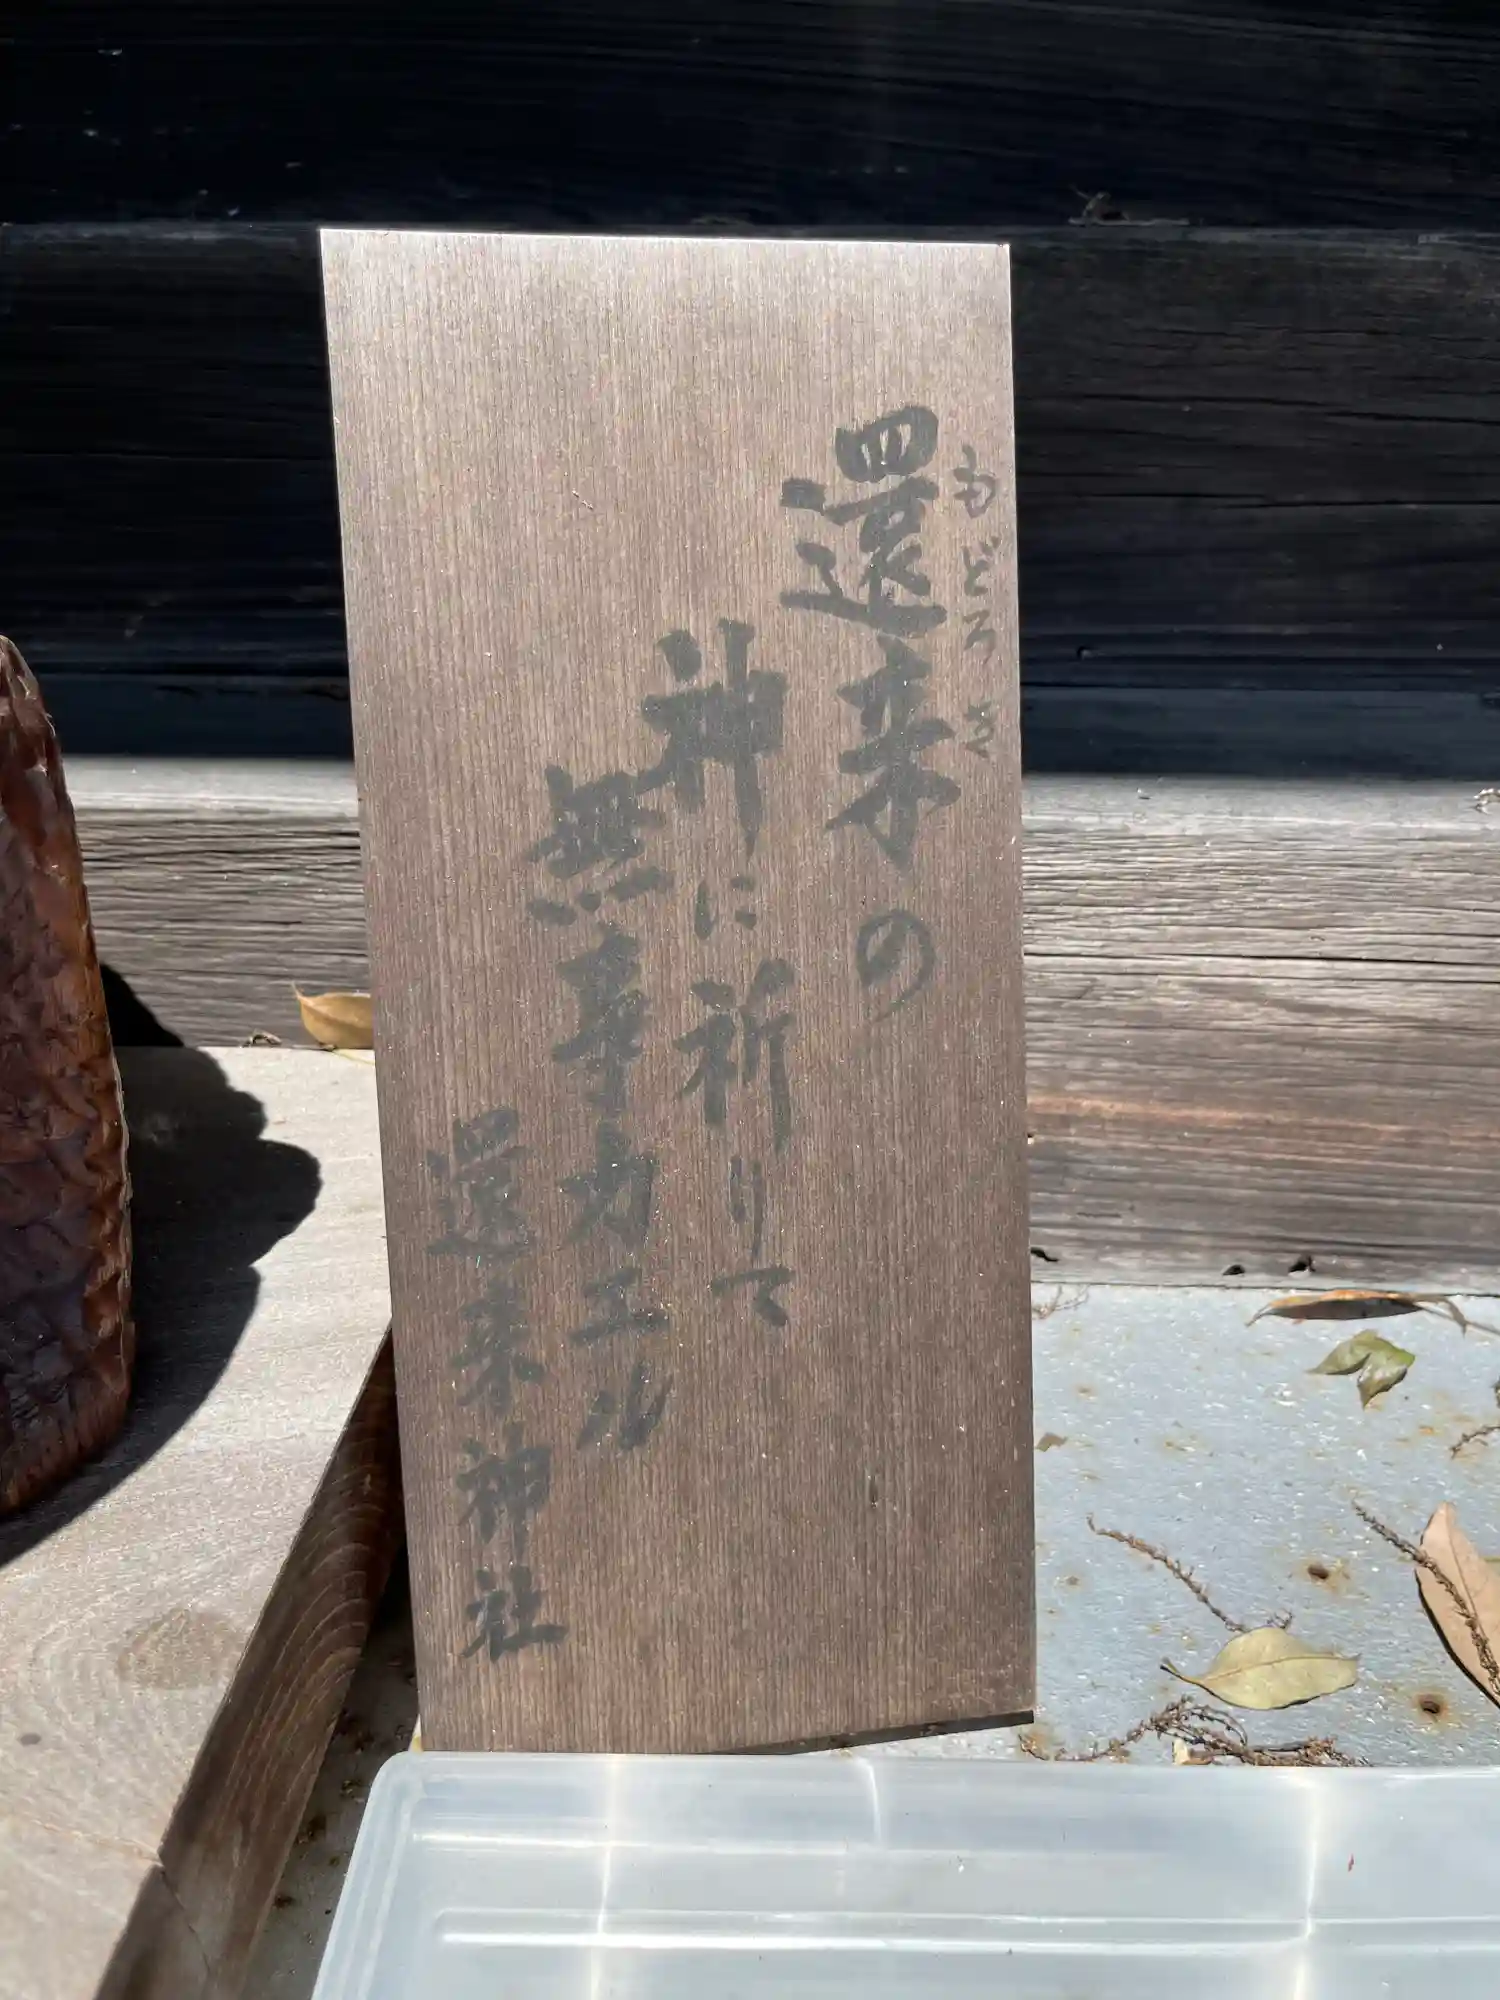 還来の
もどろき
神に祈りて
無事カエル
還来神社